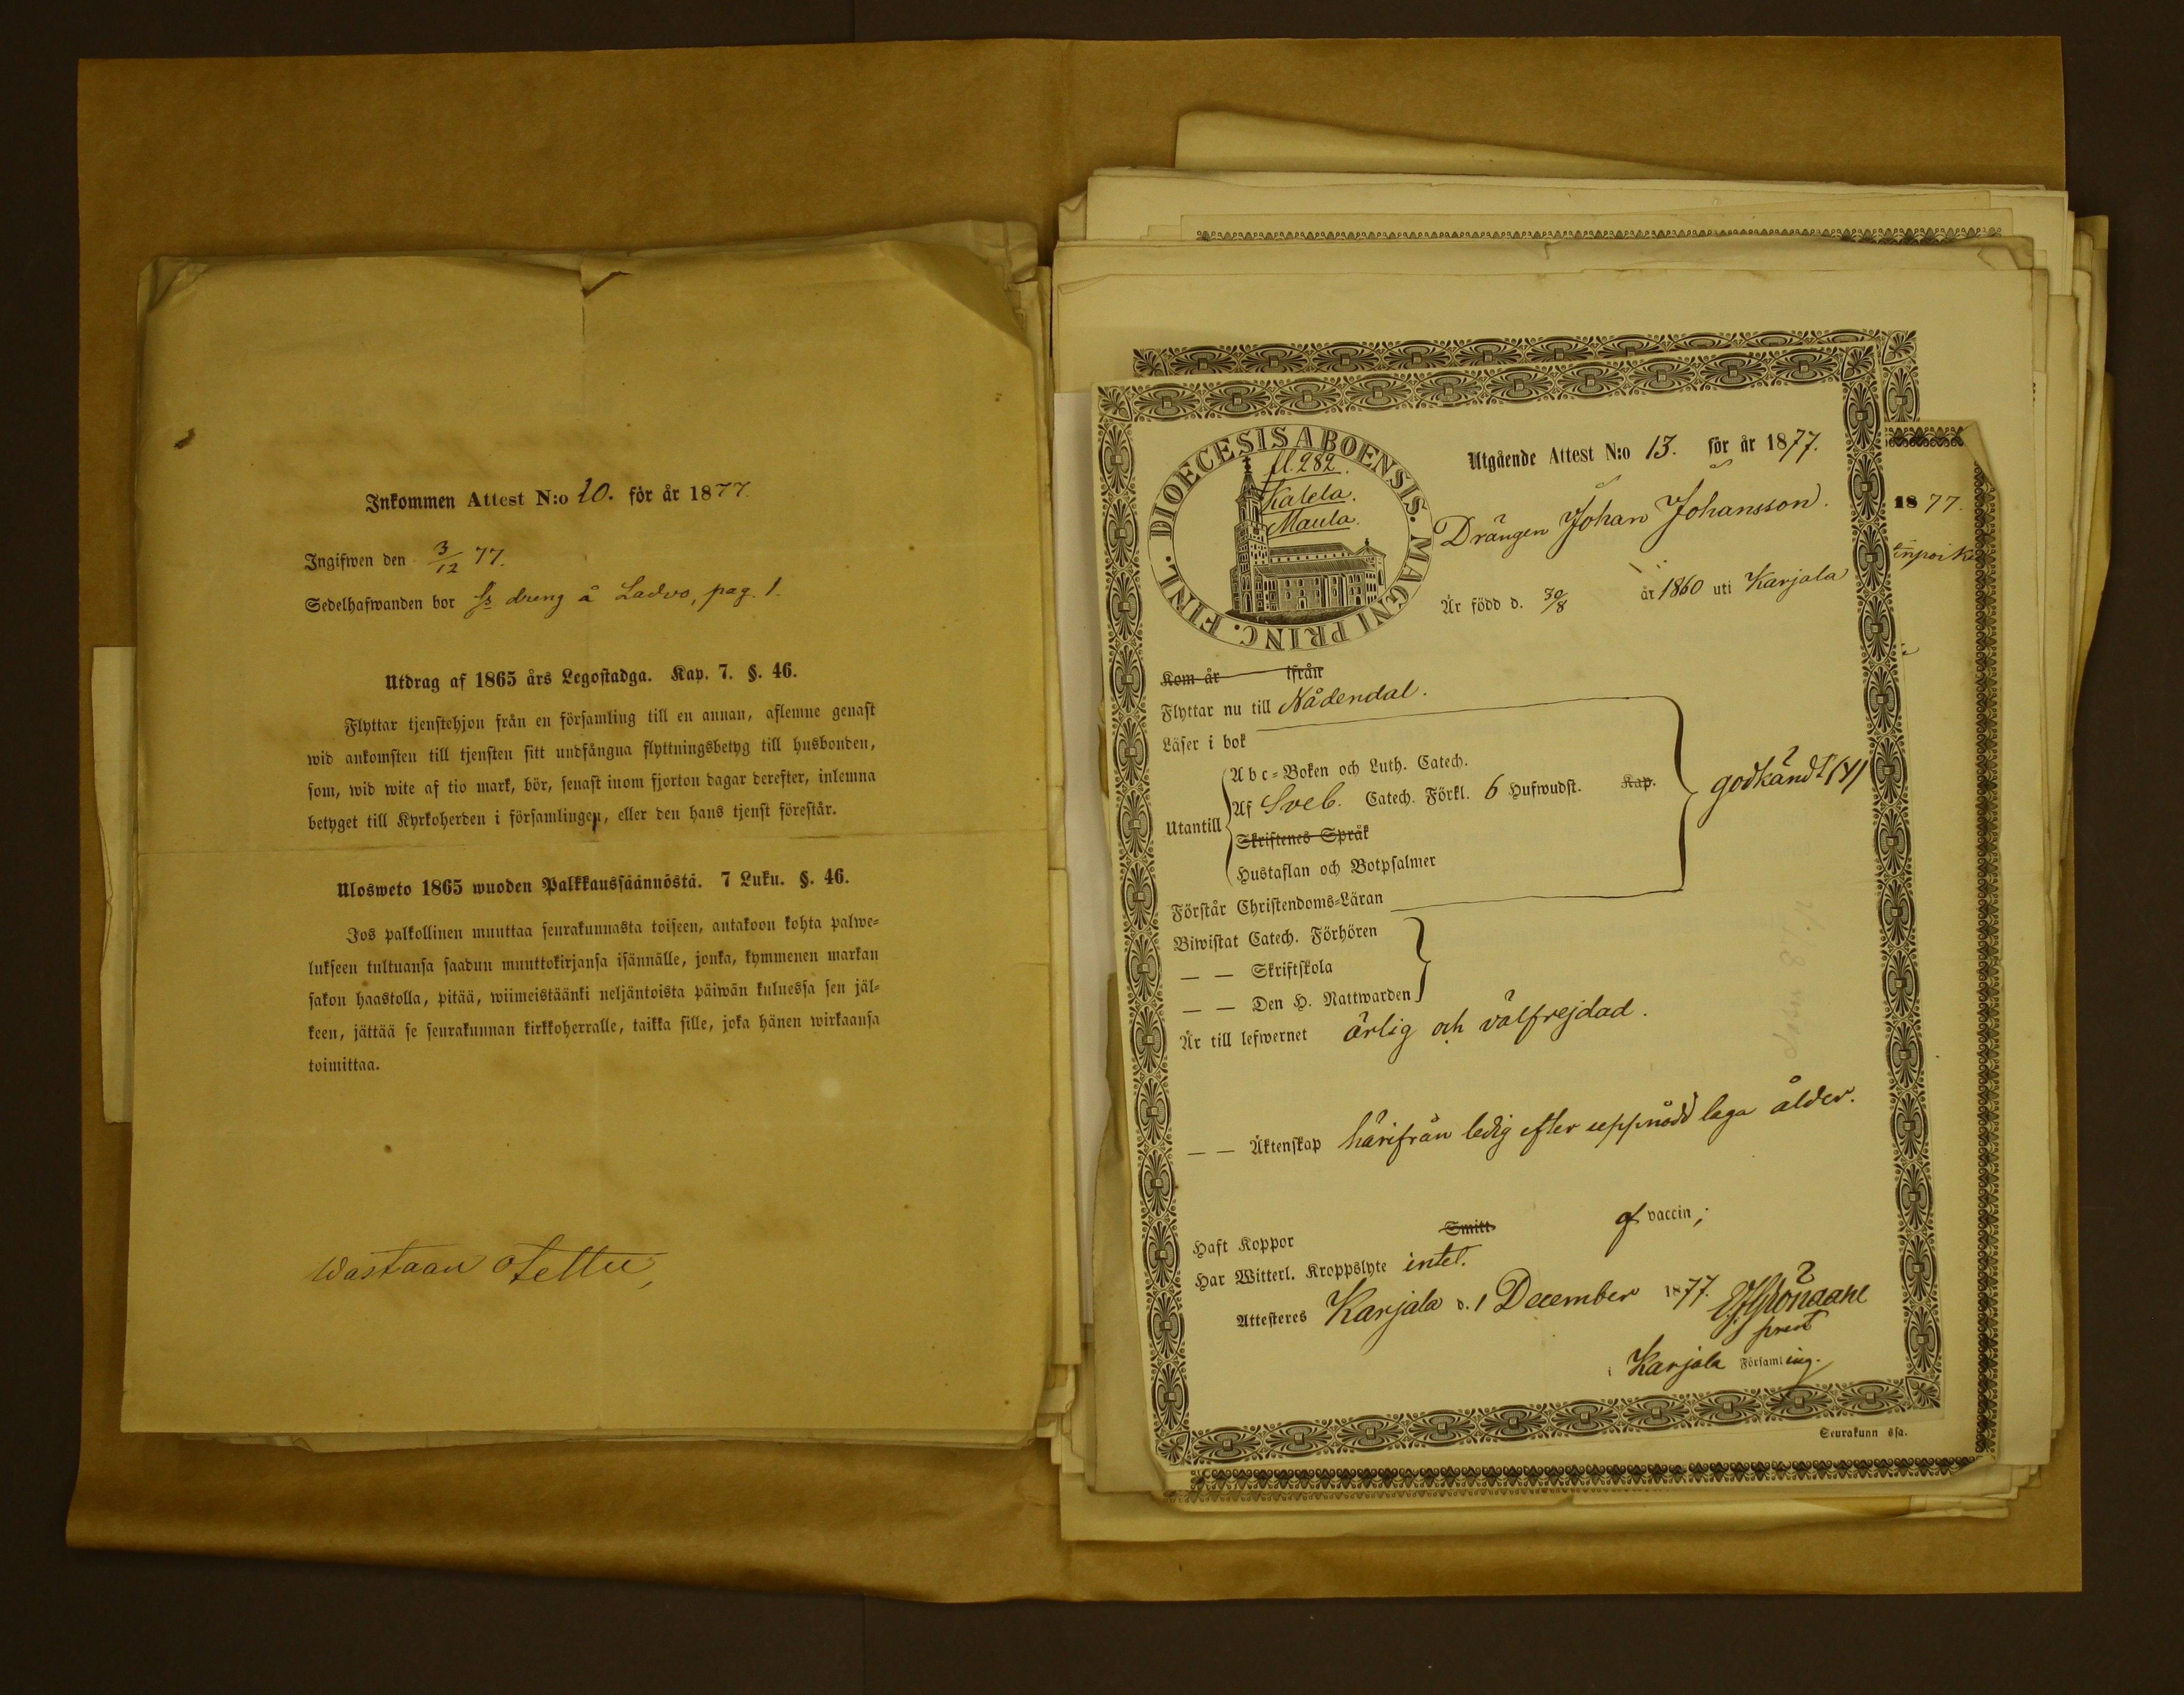 Inkommen Attest N:o 20. för år 1877.
Ingifwen den 3/12 77.
Sedelhafwanden bor dreng å Ladvo, pag. 1.
Utdrag af 1865 års Legostadga. Kap. 7. §. 46.
Flyttar tjenstehjon från en församling till en annan, aflemne genast
wid ankomsten till tjensten sitt undfångna flyttningsbetyg till husbonden,
som, wid wite af tio mark, bör, senast inom fjorton dagar derefter, inlemna
betyget till Kyrkoherden i församlingen, eller den hans tjenst förestår.
Ulosweto 1865 wuoden Palkkaussäännöstä. 7 Luku. §. 46.
Jos palkollinen muuttaa seurakunnasta toiseen, antakoon kohta palwe-
lukseen tultuansa saadun muuttokirjansa isännälle, jonka, kymmenen markan
sakon haastolla, pitää, wiimeistäänki neljäntoista päiwän kuluessa sen jäl-
keen, jättää se seurakunnan kirkkoherralle, taikka sille, joka hänen wirkaansa
toimittaa.
Wastaan otettu,
DIOECESIS ABOENSIS. MAGNI PRINC. FINL.
M. 282.
Kalela.
Maula.
Utgående Attest N:o 13. för år 1877.
Drängen Johan Johansson.
Är född d. 30/8 år 1860 uti Karjala
Kom år ifrån
Flyttar nu till Nådendal.
Läser i bok
Utantill
Abc-Boken och Luth. Catech.
Af Sveb. Catech. Förkl. 6 Hufwudst. Kap.
Skriftenes Språk
Hustaflan och Botpsalmer
godkändt
Förstår Christendoms-Läran
Biwistat Catech. Förhören
— — Skriftskola
— — Den H. Nattwarden
Är till lefwernet ärlig och välfrejdad.
— — Äktenskap härifrån ledig efter uppnådd laga ålder.
Haft Koppor Smitt af vaccin;
Har Witterl. Kroppslyte intet.
Attesteres Karjala d. 1 December 1877.
i Karjala Församling.
1877.
Seurakunn ssa.